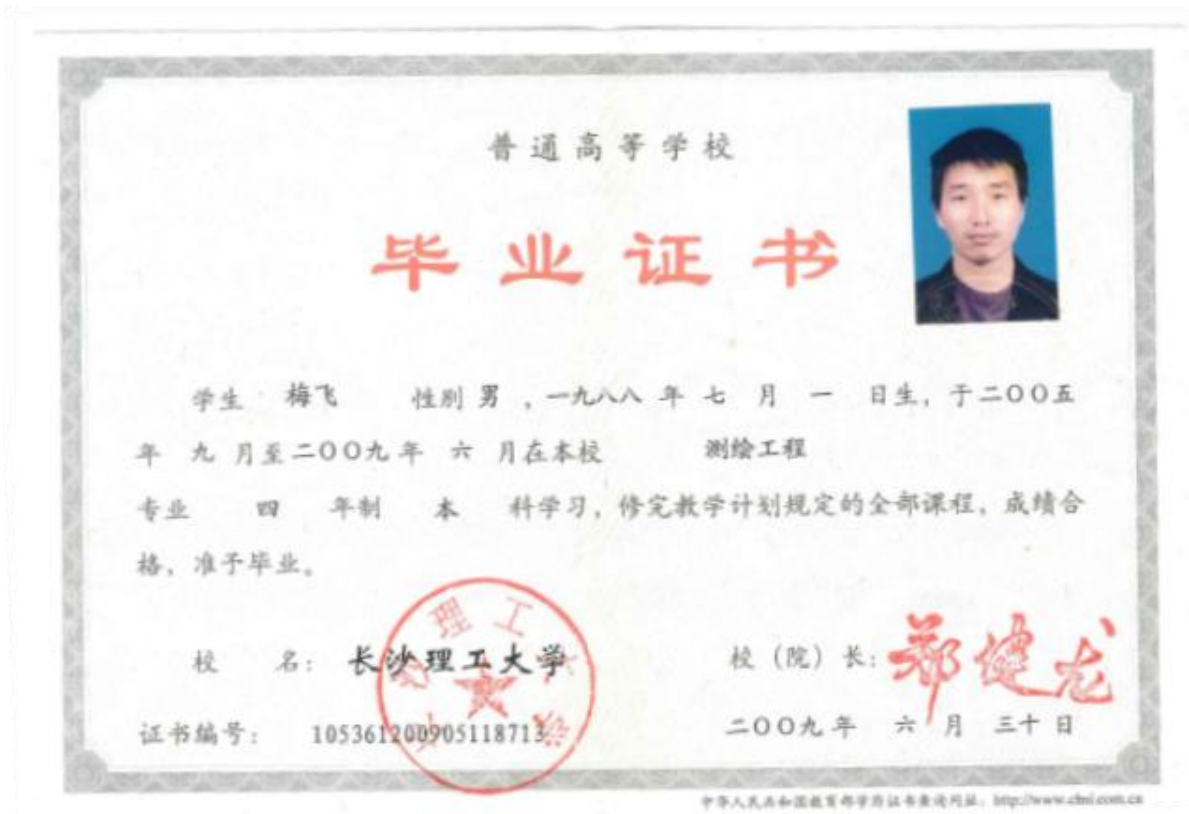 普通高等学校
毕业证书
学生 梅飞 性别 男 ，一九八八 年 七 月 一 日生，于二〇〇五
年 九 月至二〇〇九年 六 月在本校 测绘工程
专业 四 年制 本 科学习，修完教学计划规定的全部课程，成绩合
格，准予毕业。
校 名：长沙理工大学
校（院）长：郑健龙
证书编号： 105361200905118713
二〇〇九年 六 月 三十 日
中华人民共和国教育部学历证书查询网址：http://www.chsi.com.cn